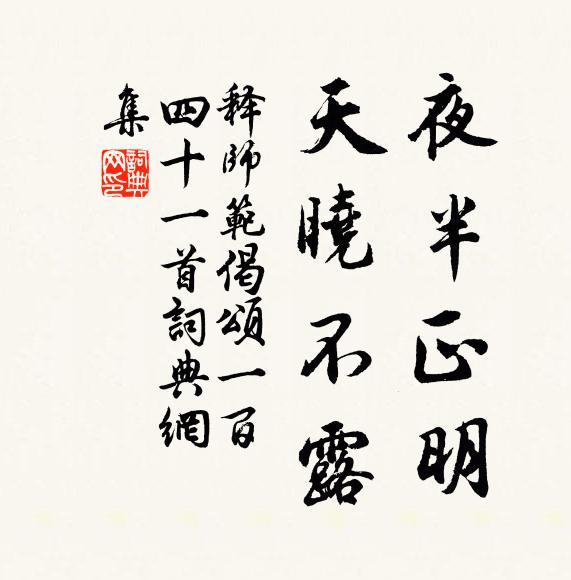 夜半正明
天曉不露
释師範偈頌一百
四十一首詞典網
集
詞典網印